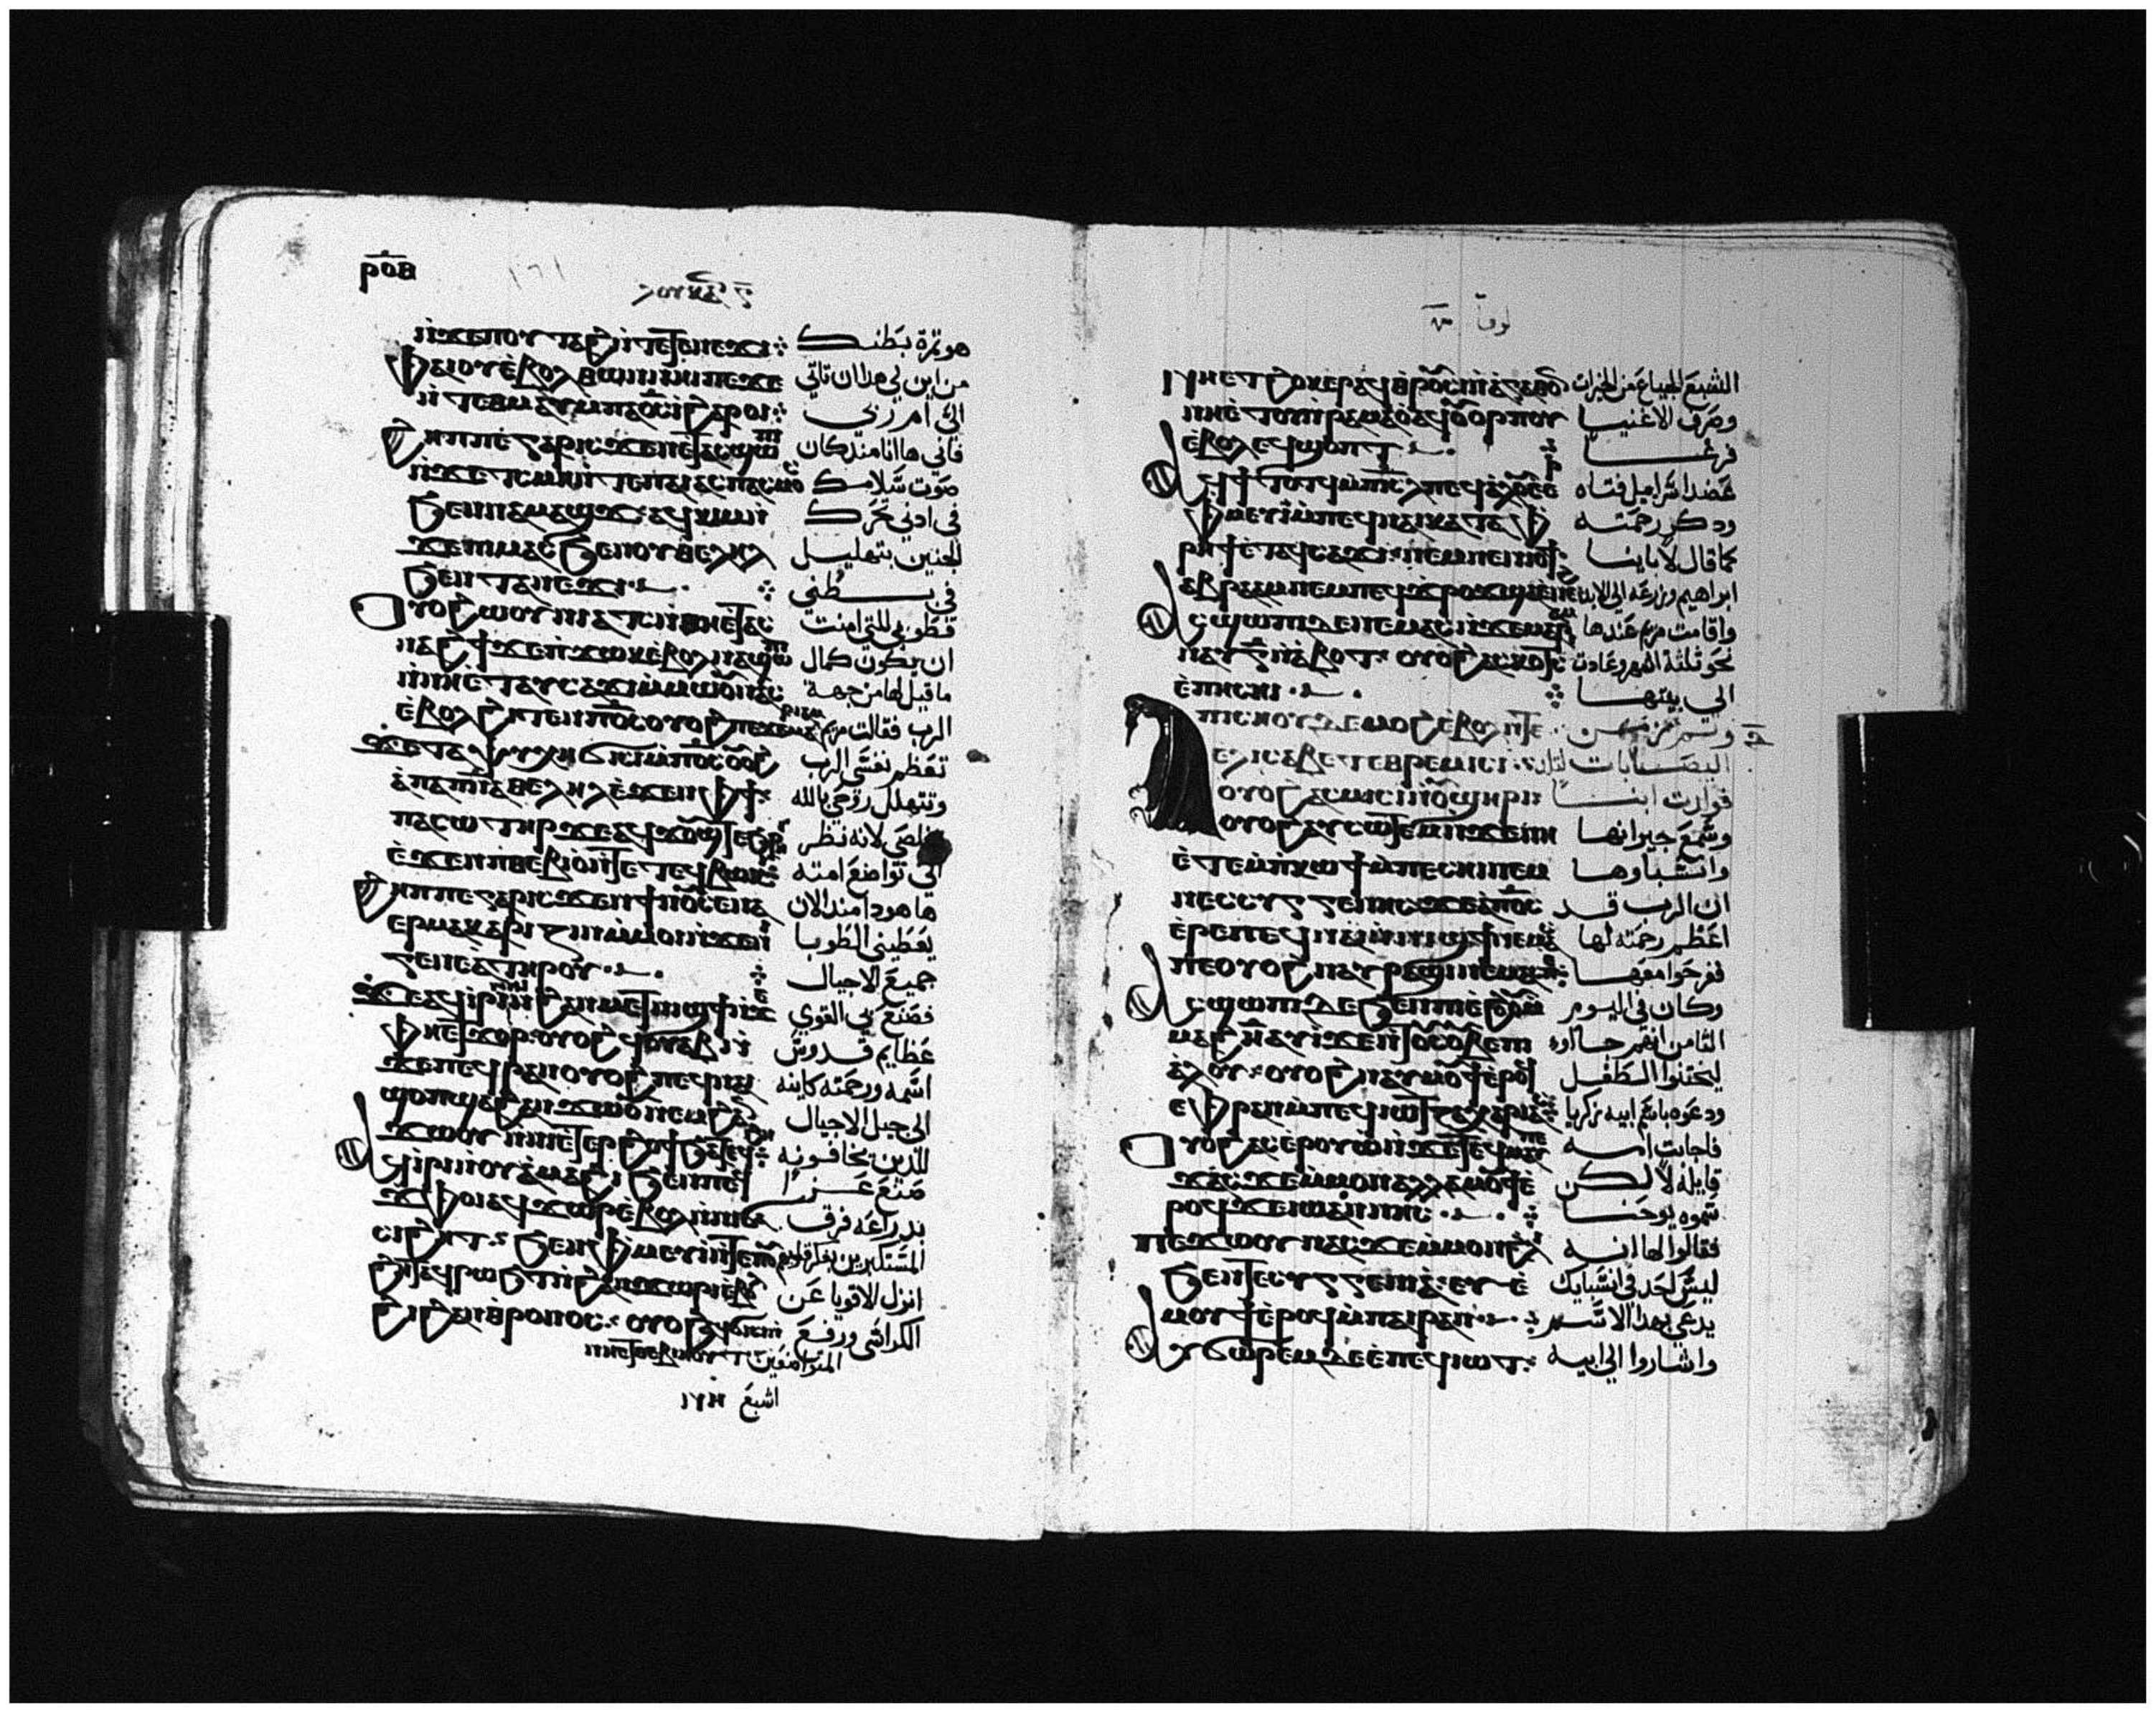 ⲣⲟⲃ
ⲛ̀ϫⲉⲡⲟⲩⲧⲁϩ ⲛ̀ⲧⲉⲧⲉⲛⲉϫⲓ هو ثمرة بطنك
ⲫⲁⲓ ⲟⲩⲉ̀ⲃⲟⲗ ⲑⲱⲛ ⲛⲏⲓ ⲡⲉ ϫⲉ من اين لي هدا ان تاتي
ⲛ̀ⲧⲉ ⲑⲙⲁⲩ ⲙ̀ⲡⲁⲟ̅ⲥ̅ ⲓ̀ ϩⲁⲣⲟⲓ الىّ ام ربي
ϩⲏⲡⲡⲉ ⲅⲁⲣ ⲓⲥϫⲉⲛ ⲉⲧⲁⲥϣⲱⲡⲓ فاني ها انا مند كان
ⲛ̀ϫⲉ ⲧⲥⲙⲏ ⲛ̀ⲧⲉ ⲡⲁⲓⲁⲥⲡⲁⲥⲙⲟⲥ صوت سلامك
ϧⲉⲛ ⲛⲁⲙⲁϣϫ ⲁϥⲕⲓⲙ ⲛ̀ في ادني تحرك
ϫⲉ ⲡⲓⲙⲁⲥ ϧⲉⲛ ⲟⲩⲑⲉⲗⲏⲗ الجنين بتهليل
ϧⲉⲛ ⲧⲁⲛⲉϫⲓ في بطني
ⲟⲩⲟϩ ⲱⲟⲩⲛⲓⲁⲧⲥ ⲛ̀ⲑⲏⲉⲧⲁⲥ فطوبى للتي امنت
ⲛⲁϩϯ ϫⲉ ⲡ̀ϫⲱⲕ ⲉ̀ⲃⲟⲗ ⲛⲁϣⲱⲡⲓ ان يكون كمال
ⲛ̀ⲛⲏⲉⲧⲁⲩⲥⲁϫⲓ ⲙ̀ⲙⲱⲟⲩ ⲛⲁⲥ ما قيل لها من جهة
ⲉ̀ⲃⲟⲗ ϩⲓⲧⲉⲛ ⲡ̅ⲟ̅ⲥ̅ ⲟⲩⲟϩ ⲡⲉϫⲉ الرب فقالت مريم
ϫⲉ ⲧⲁⲯⲩⲭⲏ ϭⲓⲥⲓ ⲙ̀ⲡⲟ̅ⲥ̅ ⲟⲩⲟϩ تعظم نفسي الرب
ⲁ̀ⲡⲁⲡ̅ⲛ̅ⲁ̅ ⲑⲉⲗⲏⲗ ⲉ̀ϫⲉⲛ ⲫϯ وتتهلل روحي بالله
ⲡⲁⲥⲱⲧⲏⲣ ϫⲉ ⲁϥϫⲟⲩϣⲧ ⲉϧⲣⲏⲓ مخلصي لانه نظر
ⲉ̀ϫⲉⲛ ⲡ̀ⲑⲉⲃⲓⲟ̀ ⲛ̀ⲧⲉ ⲧⲉϥⲃⲱⲕⲓ الى تواضع امته
ϩⲏⲡⲡⲉ ⲅⲁⲣ ⲓⲥϫⲉⲛ ϯⲛⲟⲩ ⲥⲉⲛⲁ ها هودا مند الان
ⲉⲣⲙⲁⲕⲁⲣⲓⲍⲓⲛ ⲙ̀ⲙⲟⲓ ⲛ̀ϫⲉ ⲛⲓ يعطيني الطوبا
ⲅⲉⲛⲉⲁ ⲧⲏⲣⲟⲩ جميع الاجيال
ϫⲉ ⲁϥⲓⲣⲓ ⲛⲏⲓ ⲛ̀ϩⲁⲛⲙⲉⲧⲛⲓϣϯ ⲛ̀ϫⲉ فصنع بي القوي
ⲫⲏⲉⲧϫⲟⲣ ⲟⲩⲟϩ ϥⲟⲩⲁⲃ ⲛ̀ عظايم قدوس
ϫⲉ ⲡⲉϥⲣⲁⲛ ⲟⲩⲟϩ ⲡⲉϥⲛⲁⲓ اسمه ورحمته كاينه
ϣⲟⲡ ϣⲁ ϩⲁⲛϫⲱⲟⲩ ⲛⲉⲙ ϩⲁⲛ الى جيل الاجيال
ϫⲱⲟⲩ ⲛ̀ⲛⲏⲉⲧⲉⲣϩⲟϯ ϧⲁⲧⲉϥϩⲏ للدين يخافونه
ⲁϥⲓⲣⲓ ⲛ̀ⲟⲩⲁ̀ⲙⲁϩⲓ ϧⲉⲛ ⲡⲉϥ صنع عزًا
ϫⲫⲟⲓ ⲁϥϫⲱⲣ ⲉ̀ⲃⲟⲗ ⲛ̀ⲛⲓϭⲁ بدراعه فرق
ⲥⲓϩⲏⲧ ϧⲉⲛ ⲫⲙⲉⲩⲓ ⲛ̀ⲧⲉ المستكبرين بفكر قلوبهم
ϩⲏⲧ ⲁϥⲣⲱϧⲧ ⲛ̀ϩⲁⲛϫⲱⲣⲓ ⲉ̀ⲃⲟⲗ انزل الاقويا عن
ϩⲓ ϩⲁⲛⲑⲣⲟⲛⲟⲥ ⲟⲩⲟϩ ⲁϥϭⲓⲥⲓ الكراسي ورفع
ⲛ̀ⲛⲏⲉⲧⲑⲉⲃⲓⲏⲟⲩⲧ المتواضعين
اشبع
لوقا
الشبع الجياع من الخيرات
ⲛⲏⲉⲧⲟⲓ ⲛ̀ⲣⲁⲙⲁⲟ̀ ⲁϥⲟⲩⲟⲣⲡⲟⲩ وصرف الاغنيا
ⲉ̀ⲃⲟⲗ ⲉⲩϣⲟⲩⲓⲧ فرغا
ⲁϥϯⲧⲟⲧϥ ⲙ̀ⲡⲓⲥ̅ⲗ̅ ⲡⲉϥⲁ̀ⲗⲟⲩ عضد اسراييل فتاه
ⲫⲙⲉⲩⲓ ⲙ̀ⲡⲉϥⲛⲁⲓ ⲕⲁⲧⲁ ⲫ ودكر رحمته
ⲣⲏϯ ⲉ̀ⲧⲁϥⲥⲁϫⲓ ⲛⲉⲙ ⲛⲉⲛⲓⲟϯ كما قال لاباينا
ⲁⲃⲣⲁⲁⲙ ⲛⲉⲙ ⲡⲉϥϫ̀ⲣⲟϫ ϣⲁ ⲉ̀ⲛⲉϩ ابراهيم وزرعه الى الابد
ⲁⲥϣⲱⲡⲓ ⲇⲉ ⲛⲉⲙⲁⲥ ⲛ̀ϫⲉ ⲙⲁⲣⲓⲁⲙ واقامت مريم عندها
ⲛⲁⲩ ⲅ̅ ⲛ̀ⲁ̀ⲃⲟⲧ ⲟⲩⲟϩ ⲁⲥⲕⲟⲧⲥ نحو ثلثة اشهر وعادت
ⲉ̀ⲡⲉⲥⲏⲓ الى بيتها
ⲡⲓⲥⲏⲟⲩ ⲇⲉ ⲁϥⲙⲟϩ ⲉ̀ⲃⲟⲗ ⲛ̀ⲧⲉ
ⲉⲗⲓⲥⲁⲃⲉⲧ ⲉⲑⲣⲉⲥⲙⲓⲥⲓ اليصابات لتلد
ⲟⲩⲟϩ ⲁⲥⲙⲓⲥⲓ ⲛ̀ⲟⲩϣⲏⲣⲓ فولدت ابنا
ⲟⲩⲟϩ ⲁⲩⲥⲱⲧⲉⲙ ⲛ̀ϫⲉ ⲛⲏ وسمع جيرانها
ⲉ̀ⲧⲉⲙ̀ⲡⲕⲱϯ ⲙ̀ⲡⲉⲥⲏⲓ ⲛⲉⲙ وانسباوها
ⲛⲉⲥⲥⲩⲅⲅⲉⲛⲏⲥ ϫⲉ ⲁ̀ⲡ̅ⲟ̅ⲥ̅ ان الرب قد
ⲉ̀ⲣⲉ ⲡⲉϥⲛⲁⲓ ⲛ̀ⲛⲓϣϯ ⲛⲉⲙⲁⲥ اعظم رحمته لها
ⲡⲉ ⲟⲩⲟϩ ⲛⲁⲩⲣⲁϣⲓ ⲛⲉⲙⲁⲥ ففرحوا معها
ⲁⲥϣⲱⲡⲓ ⲇⲉ ϧⲉⲛ ⲡⲓⲉ̀ϩⲟⲟⲩ وكان في اليوم
ⲙⲁϩ ⲏ̅ ⲁⲩⲓ̀ ϫⲉ ⲛ̀ⲧⲟⲩⲥⲟⲩⲃⲉ ⲡⲓ الثامن انهم جااوه
ⲁ̀ⲗⲟⲩ ⲟⲩⲟϩ ⲛⲁⲩⲙⲟⲩϯ ⲉ̀ⲣⲟϥ ليختنوا الطفل
ⲉⲫⲣⲁⲛ ⲙ̀ⲡⲉϥⲓⲱⲧ ⲍⲁⲭⲁⲣⲓⲁⲥ ودعوه باسم ابيه زكريا
ⲟⲩⲟϩ ⲁⲥⲉⲣⲟⲩⲱ̀ ⲛ̀ϫⲉ ⲧⲉϥⲙⲁⲩ فاجابت امه
ⲡⲉϫⲁⲥ ϫⲉ ⲙ̀ⲙⲟⲛ ⲁⲗⲗⲁ ⲙⲟⲩϯ ⲉ̀ قايلة لا لكن
ⲣⲟϥ ϫⲉ ⲓⲱⲁⲛⲛⲏⲥ سموه يوحنا
ⲡⲉϫⲱⲟⲩ ⲛⲁⲥ ϫⲉ ⲙ̀ⲙⲟⲛ ϩⲗⲓ فقالوا لها انه
ϧⲉⲛ ⲧⲉⲥⲩⲅⲅⲉⲛⲓⲁ ⲉⲩ ليس احد في انسبايك
ⲙⲟⲩϯ ⲉ̀ⲣⲟϥ ⲙ̀ⲡⲁⲓⲣⲁⲛ يدعى بهدا الاسم
ⲁⲩϭⲱⲣⲉⲙ ⲇⲉ ⲉ̀ⲡⲉϥⲓⲱⲧ واشاروا الى ابيه